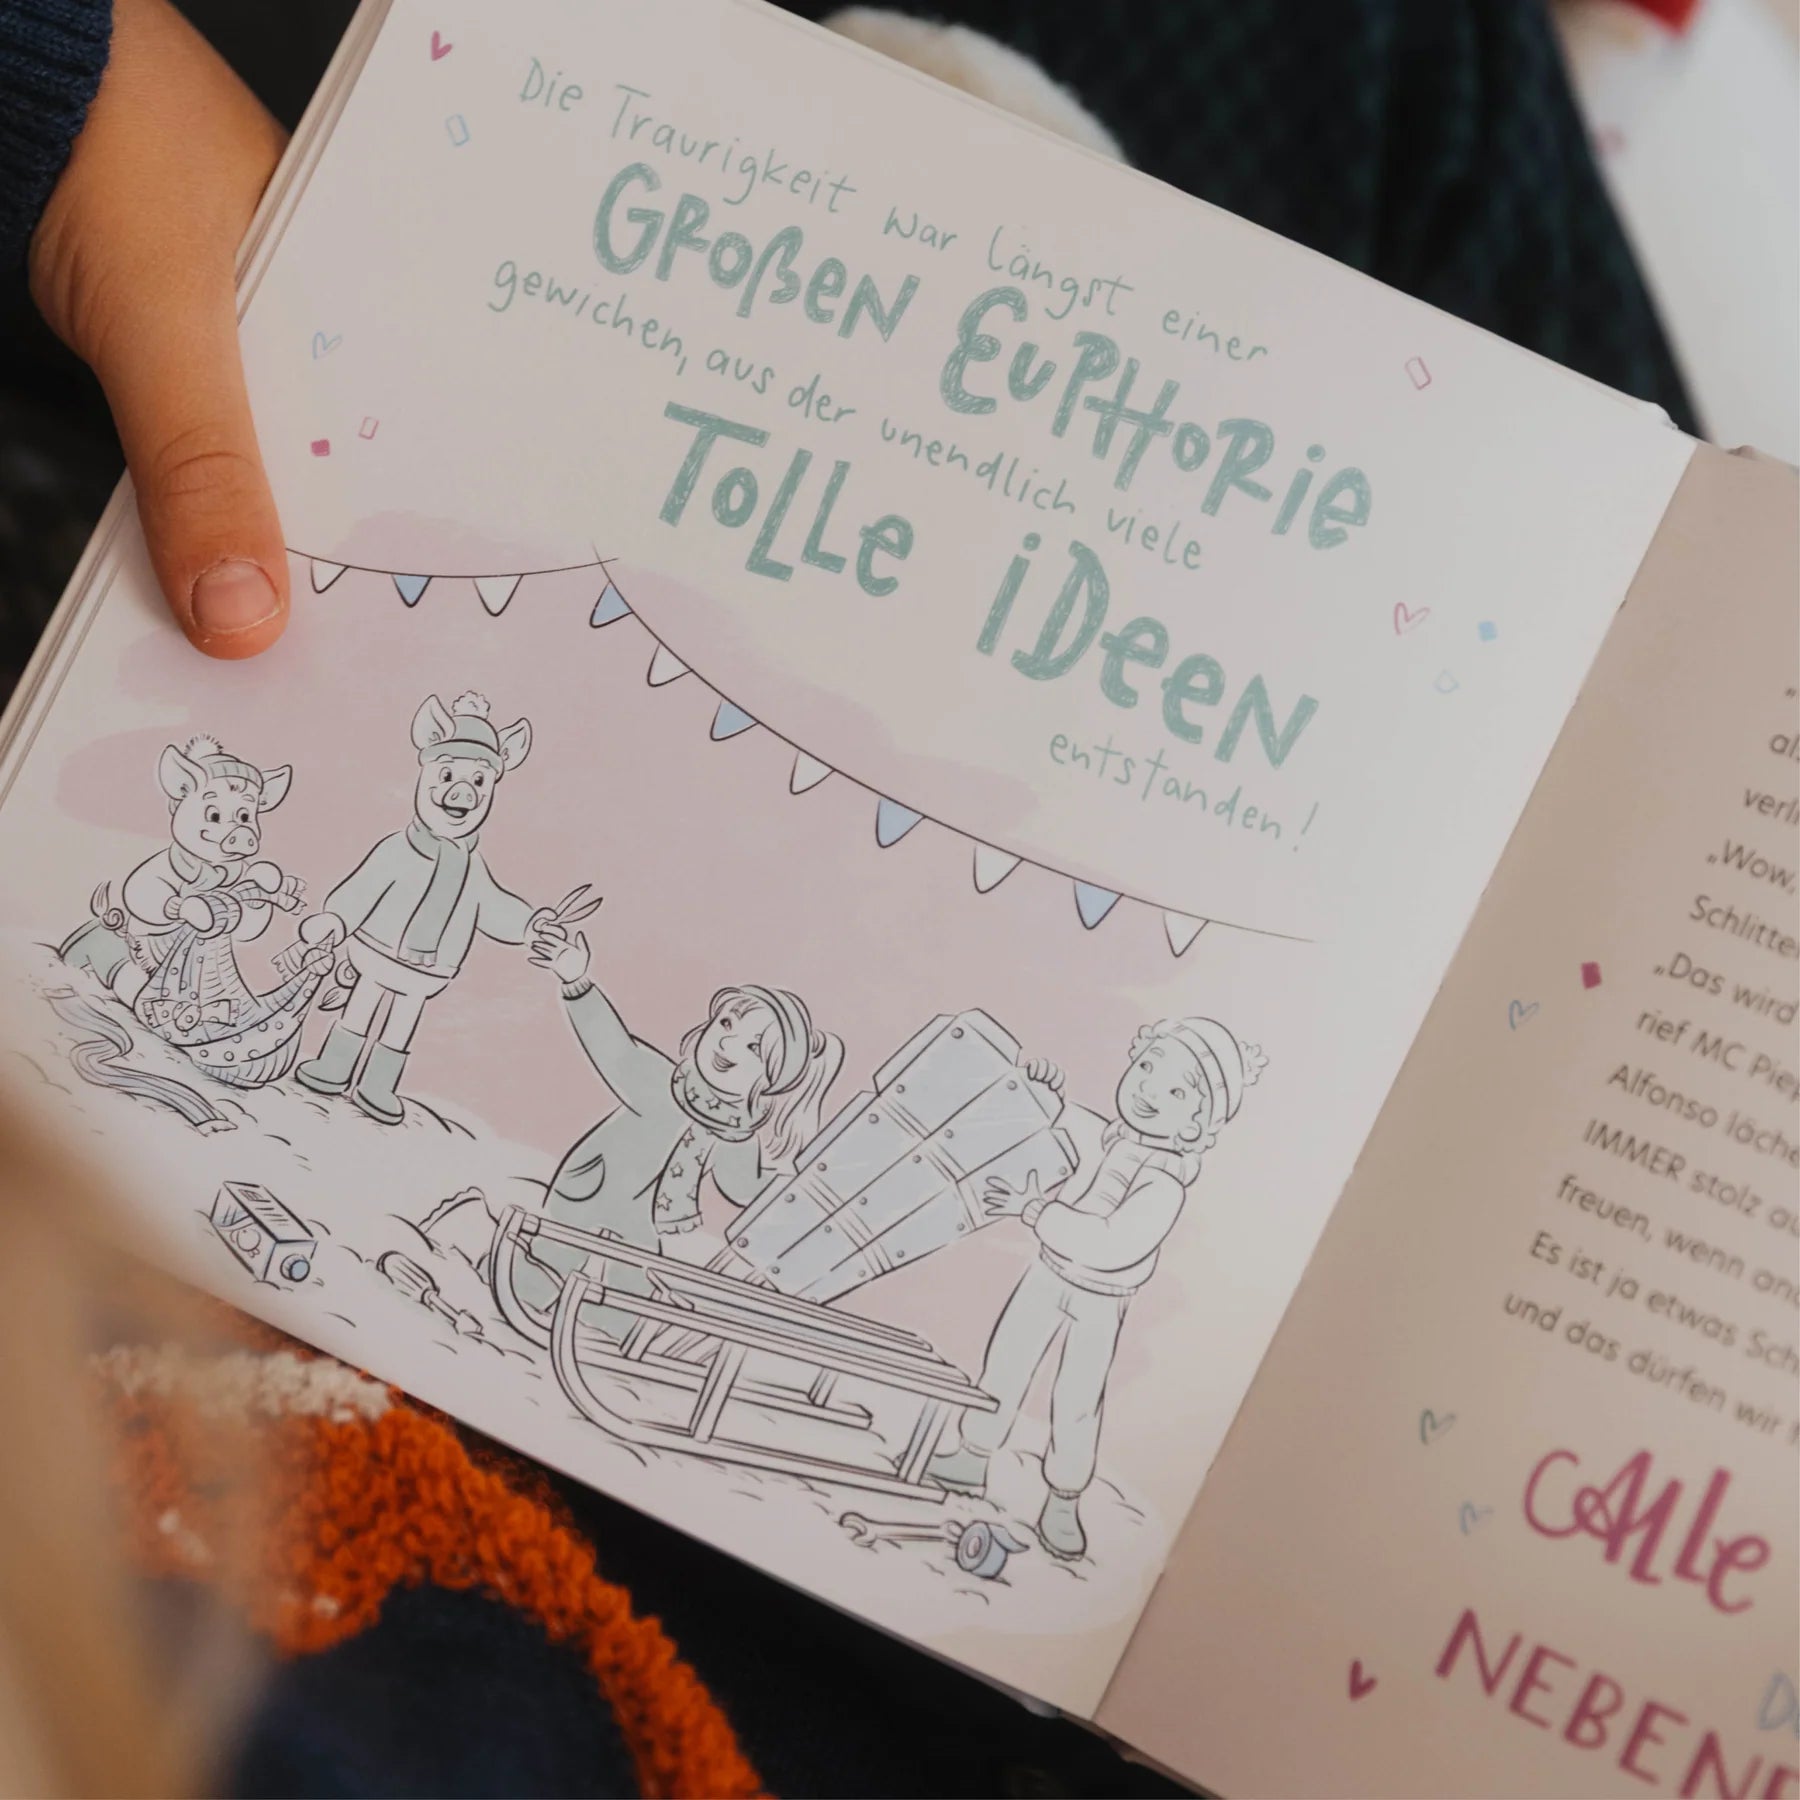 Die Traurigkeit war längst einer
GROßEN EUPHORIE
gewichen, aus der unendlich viele
TOLLE IDEEN
entstanden!
„Wow,
Schlitte
„Das wird
rief MC Piep
Alfonso läche
IMMER stolz au
freuen, wenn and
Es ist ja etwas Sch
und das dürfen wir
CALLE
NEBEN